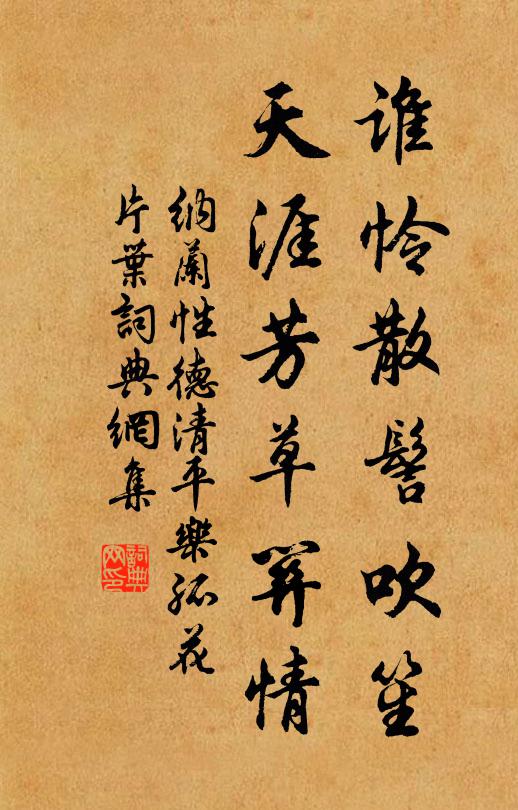 誰憐散髻吹笙
天涯芳草關情
納蘭性德清平樂孤花
片葉詞典網集
詞典
网印